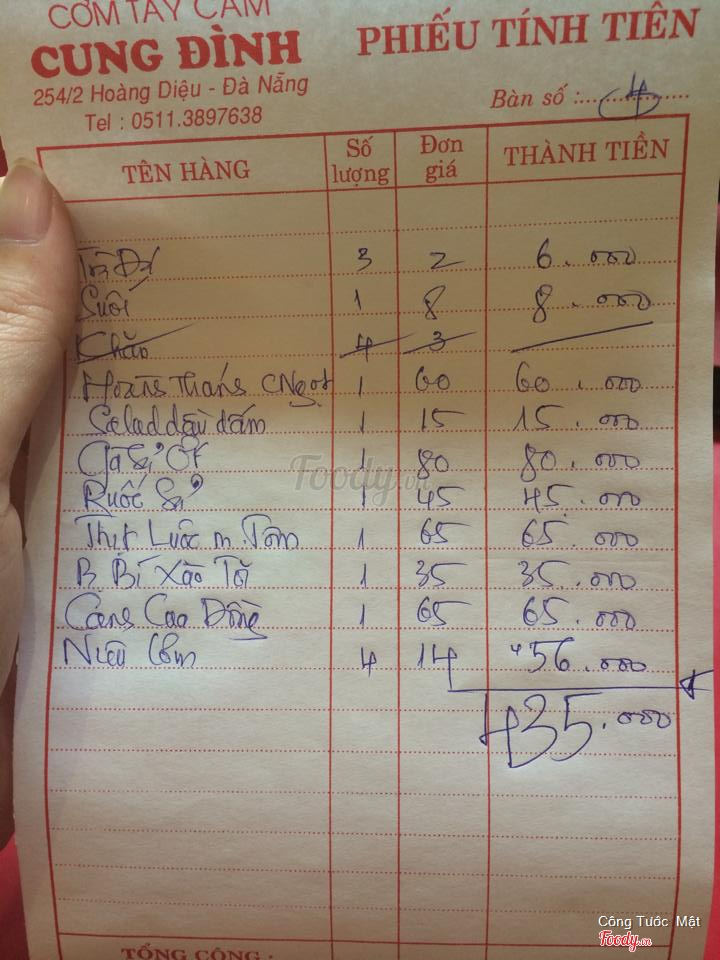 CƠM TAY CẦM
CUNG ĐÌNH
254/2 Hoàng Diệu - Đà Nẵng
Tel : 0511.3897638
PHIẾU TÍNH TIỀN
Bàn số : 4
TÊN HÀNG Số lượng Đơn giá THÀNH TIỀN
Trà Đá 3 2 6.000
Suối 1 8 8.000
Khăn 4 3
1 60 60.000
Salad dầu dấm 1 15 15.000
Gà Sả Ớt 1 80 80.000
Ruốc Sả 1 45 45.000
Thịt Luộc m. Tôm 1 65 65.000
B Bí Xào Tỏi 1 35 35.000
Canh Cao Đồng 1 65 65.000
Niêu Cơm 4 14 56.000
435.000
TỔNG CỘNG :
Foody.vn
Công Tước Mật
Foody.vn